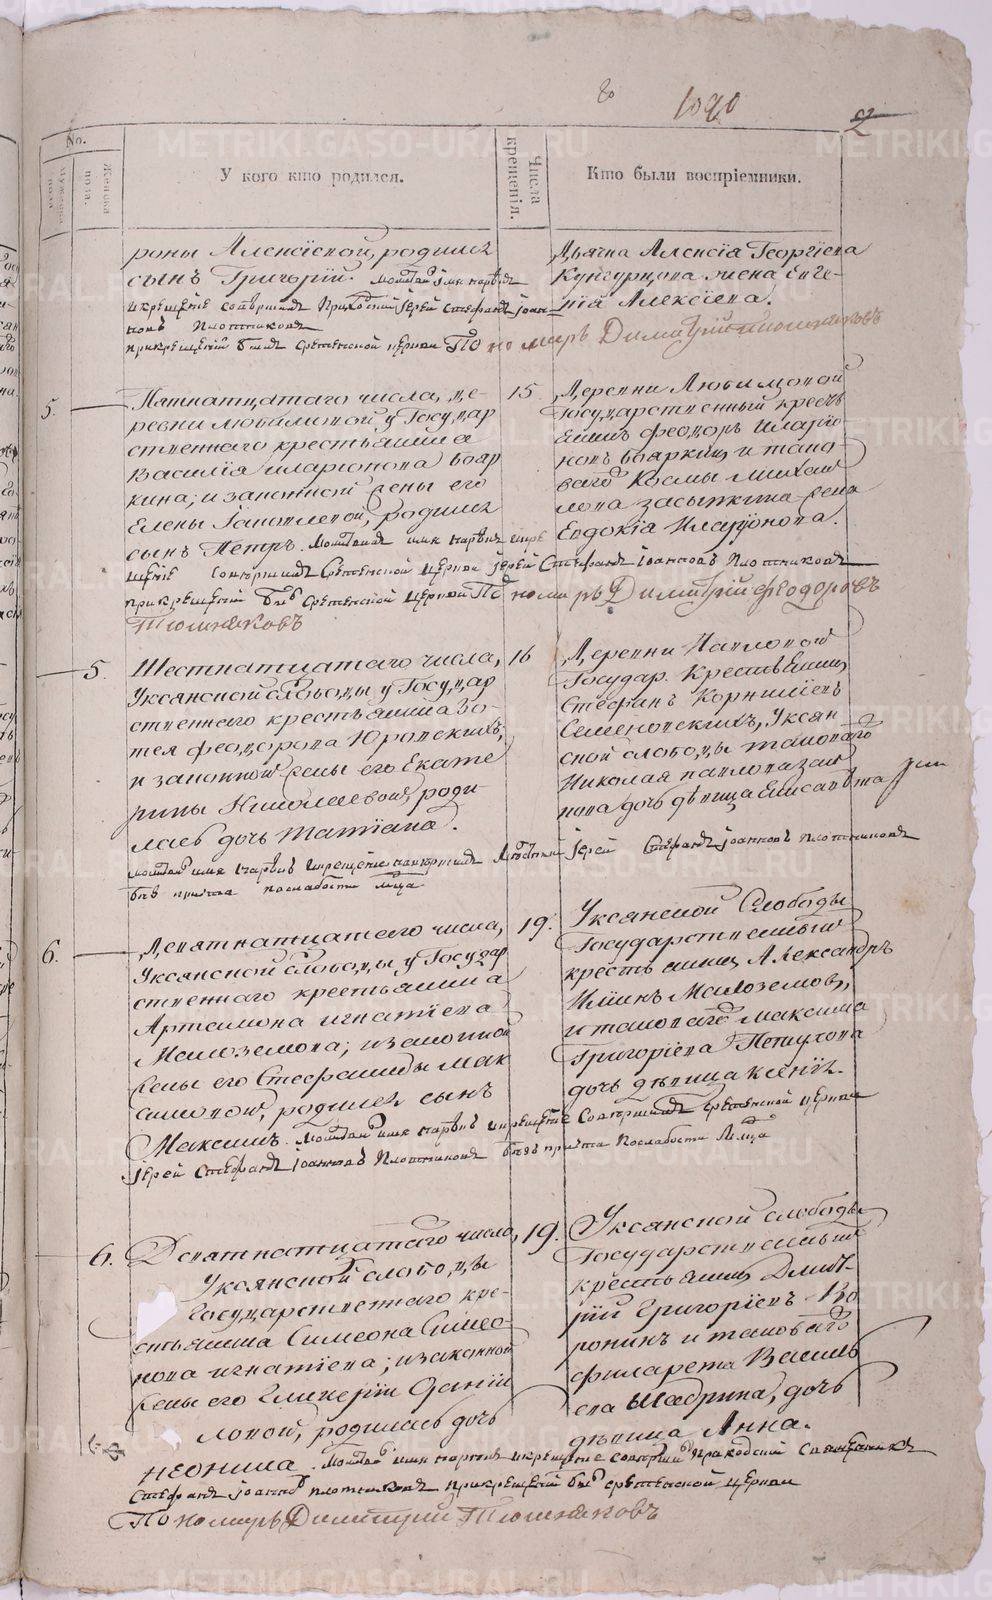 1090
2
No.
Мужеска пола.
Женска пола.
У кого кто родился.
Числа крещенія.
Кто были воспріемники.
роны Алексіевой, родился
сынъ Григорій. Молитвовалъ имя нарѣкъ
и крещеніе совершилъ Приходскій Іерей Стефанъ Іоан-
новъ Плотниковъ
при крещеніи былъ Срѣтенской церкви Пономарь Димитрій Тюшняковъ
Дьячка Алексія Георгіева
Кунгурцова жена Евге-
нія Алексіева.
5.
Пятнатцатаго числа, де-
ревни Любимовой у Государ
ственнаго крестьянина
Василія Иларіонова Бояр
кина; и законной жены его
Елены Іаковлевой, родился
сынъ Петръ. Молитвовалъ имя нарѣкъ и кре
щеніе совершилъ Срѣтенской церкви Іерей Стефанъ Іоанновъ Плотниковъ
при крещеніи былъ Срѣтенской церкви Пономарь Димитрій Феодоровъ
Тюшняковъ
15.
Деревни Любимовой
Государственный кресть
янинъ Феодоръ Иларіо
новъ Бояркинъ и тако
ваго Космы Михаи
лова Засыпкина жена
Евдокія Иларіонова.
5.
Шестнатцатаго числа,
Уксянской слободы у Государ
ственнаго крестьянина Зо-
тея Феодорова Юровскихъ,
и законной жены его Екате
рины Николаевой, роди
лась дочь Татіана.
молитвовалъ имя нарѣкъ и крещеніе совершилъ Іерей Стефанъ Іоанновъ Плотниковъ
безъ причта по слабости лица
16
Деревни Павловой
Государ. Крестьянинъ
Стефанъ Корниліевъ
Семеновскихъ, Уксян
ской слободы таковаго
Николая Павлова
дочь дѣвица Елисавета
6.
Девятнатцатаго числа,
Уксянской слободы у Государ
ственнаго крестьянина
Артамона Игнатіева
Малоземова; и законной
жены его Стефаниды Мак
симовой, родился сынъ
Максимъ. Молитвовалъ имя нарѣкъ и крещеніе совершилъ Срѣтенской церкви
Іерей Стефанъ Іоанновъ Плотниковъ безъ причта по слабости лица
19.
Уксянской Слободы
Государственный
крестьянинъ Александръ
Ильинъ Малоземовъ,
и таковаго Максима
Григоріева Петухова
дочь дѣвица Ксенія.
6.
Девятнатцатаго числа,
Уксянской слободы
Государственнаго кре-
стьянина Симеона Симео-
нова Игнатіева; и законной
жены его Гликеріи Даніи
ловой, родилась дочь
Неонила. Молитвовалъ имя нарѣкъ и крещеніе совершилъ Приходской Священникъ
Стефанъ Іоанновъ Плотниковъ при крещеніи былъ Срѣтенской церкви
Пономарь Димитрій Тюшняковъ
19.
Уксянской слободы
Государственный
крестьянинъ Дмит-
рій Григоріевъ Во
ронинъ и таковаго
Филарета Василь
ева Шабрина, дочь
дѣвица Анна.
METRIKI.GASO-URAL.RU